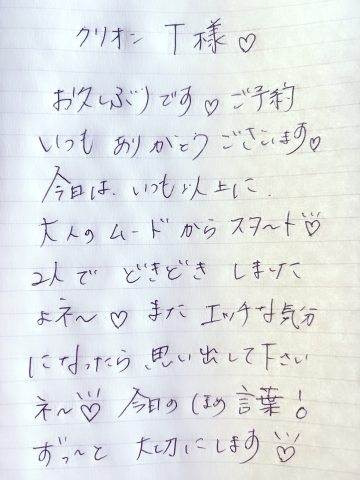 クリオン T様♡
お久しぶりです♡ご予約
いつも ありがとう ございます♡
今日は、いつも以上に、
大人のムードからスタ〜ト♡
2人で どきどき しました
よネ〜♡ また エッチな気分
になったら思い出して下さい
ネ〜♡ 今日のほめ言葉!
ずっ〜と 大切にします♡